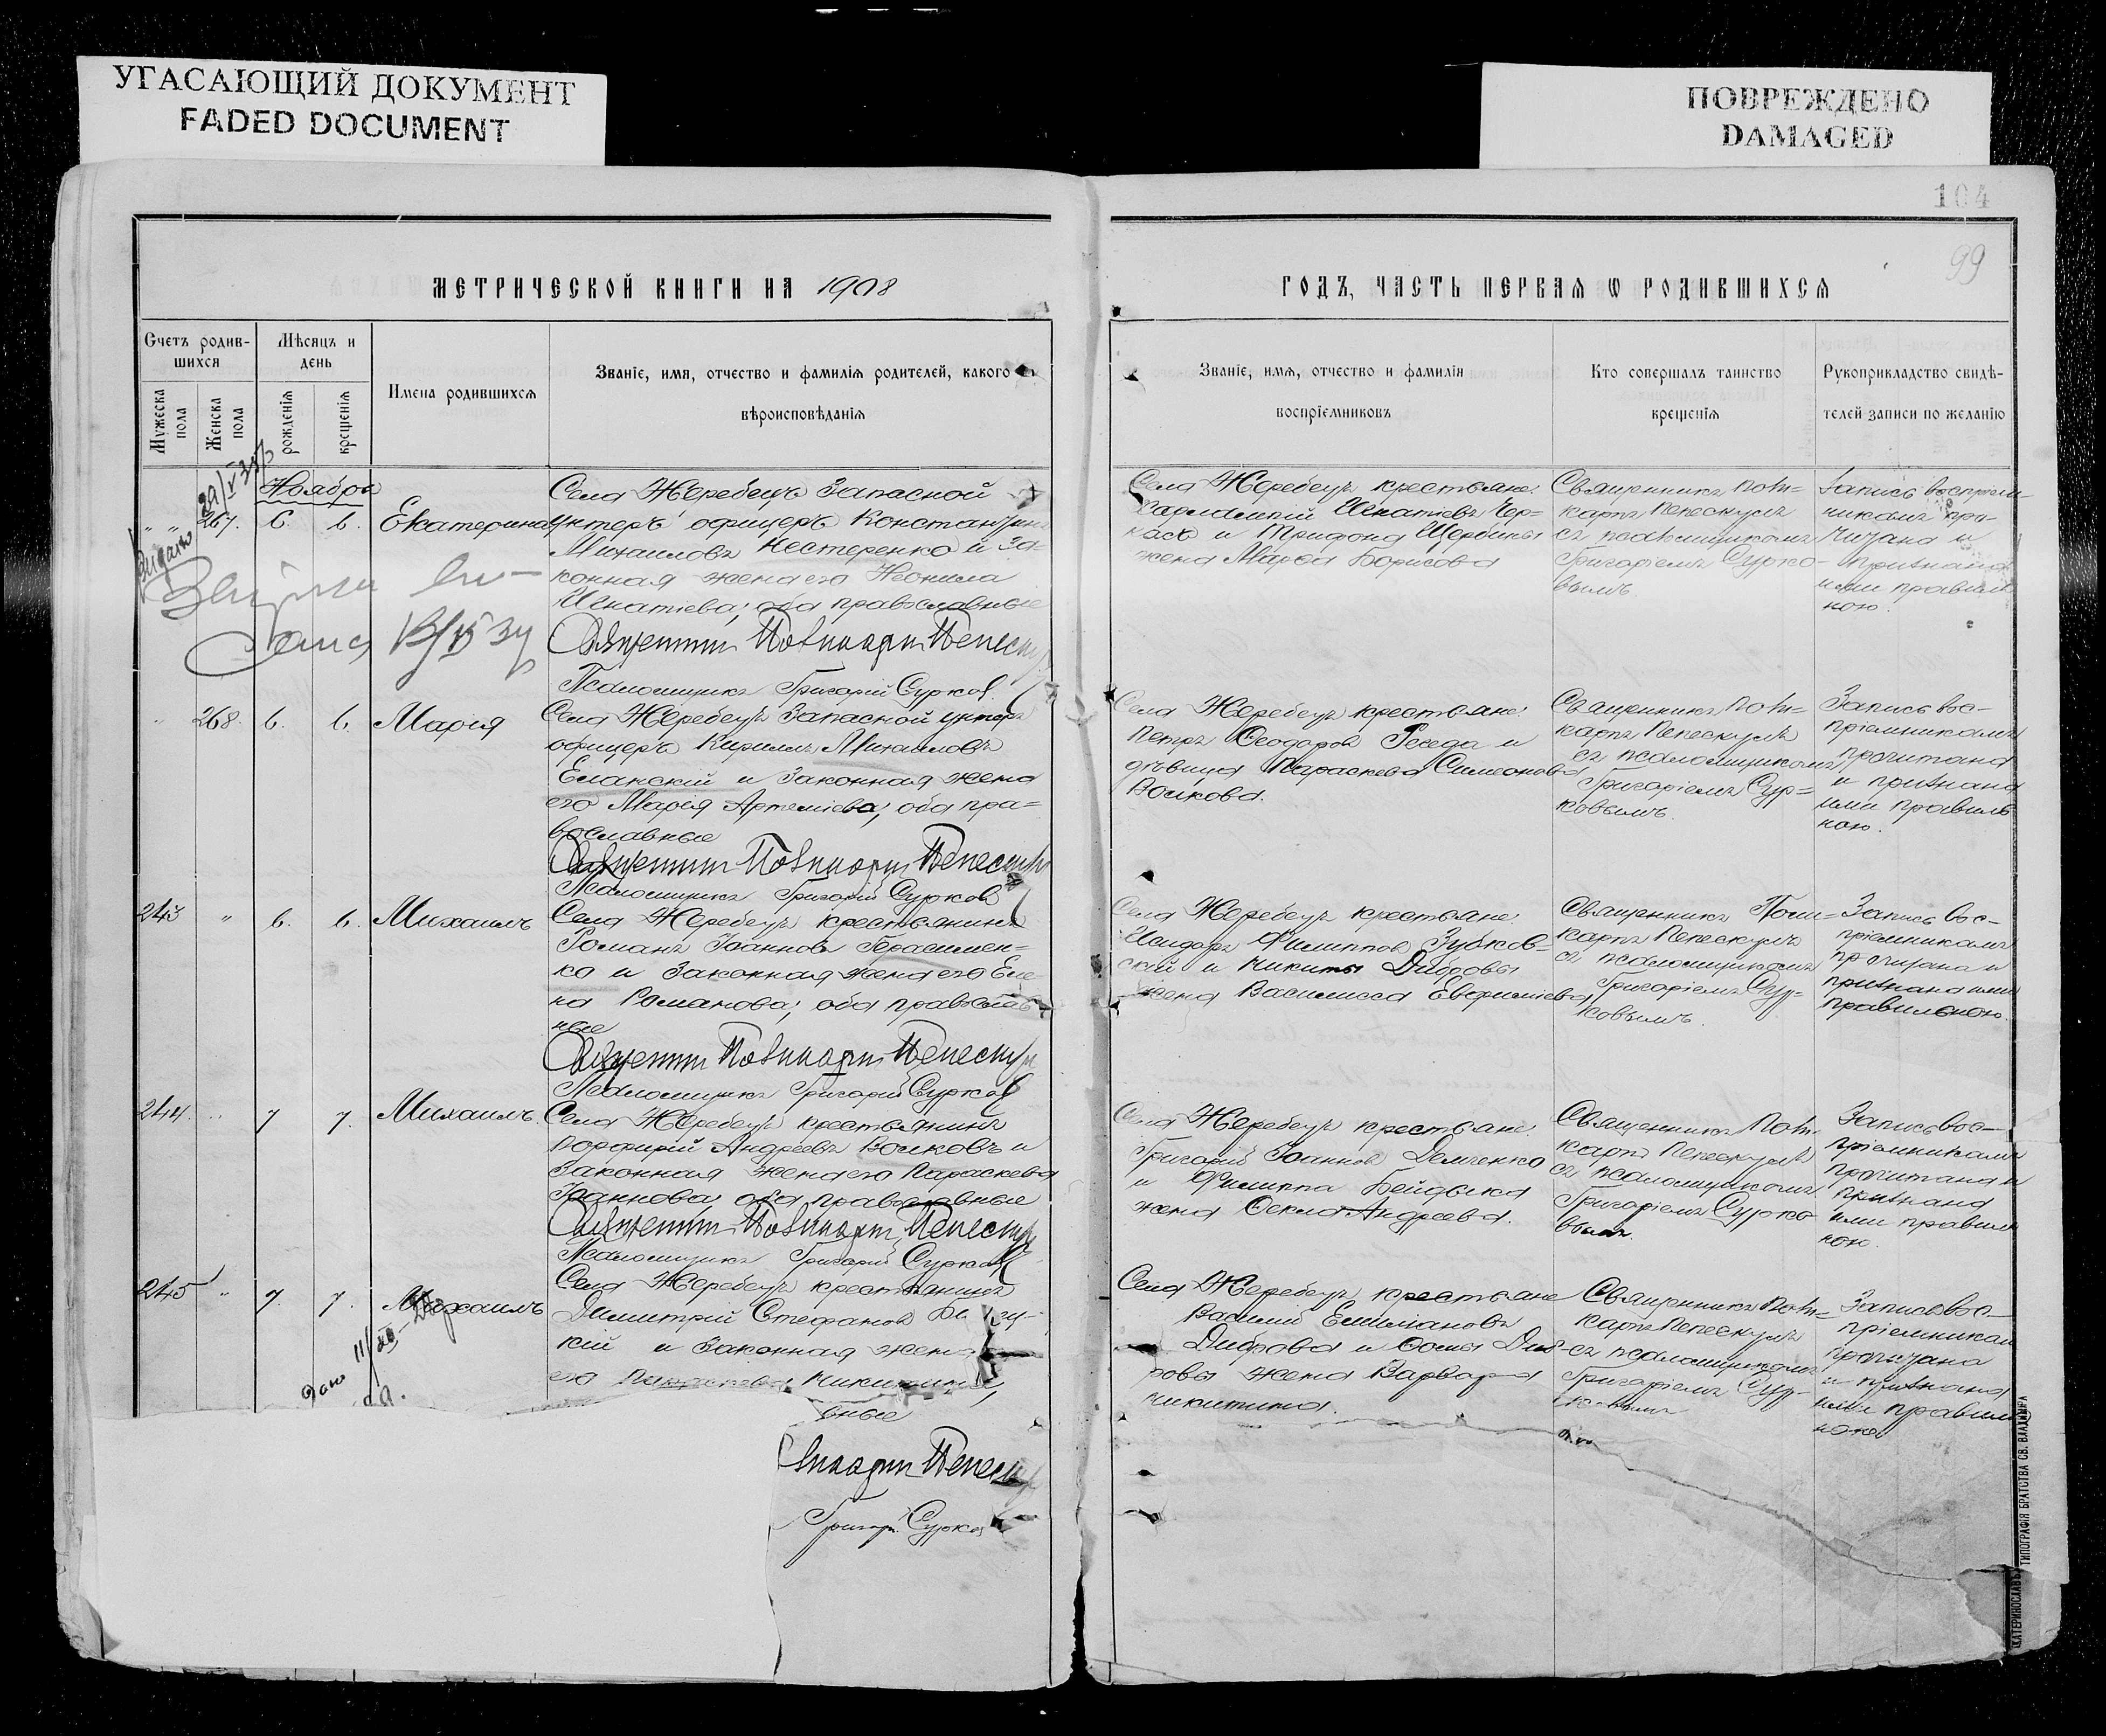 УГАСАЮЩИЙ ДОКУМЕНТ
FADED DOCUMENT
ПОВРЕЖДЕНО
DAMAGED
104
99
МЕТРИЧЕСКОЙ КНИГИ НА 1908
ГОДЪ, ЧАСТЬ ПЕРВАЯ Ѡ РОДИВШИХСЯ
Счетъ родив-
шихся
Мужеска
пола
Женска
пола
Мѣсяцъ и
день
рожденія
крещенія
Имена родившихся
Званіе, имя, отчество и фамилія родителей, какого
вѣроисповѣданія
Званіе, имя, отчество и фамилія
воспріемниковъ
Кто совершалъ таинство
крещенія
Рукоприкладство свидѣ-
телей записи по желанію
Ноябрь
267. 6. 6. Екатерина
Села Жеребецъ Запасной
унтеръ офицеръ Константинъ
Михаиловъ Нестеренко и за-
конная жена его Неонила
Игнатіева; оба православные
Псаломщикъ Григорій Сурковъ
Села Жеребецъ крестьяне:
Харлампій Игнатіевъ Чер-
касъ и Тридона Щербины
жена Марѳа Борисова
Священникъ Поли-
карпъ Пепескулъ
съ псаломщикомъ
Григоріемъ Сурко-
вымъ.
Запись воспріем-
никамъ про-
читана и
признана
ими правиль
ною.
268. 6. 6. Марія
Села Жеребецъ Запасной унтеръ
офицеръ Кириллъ Михаиловъ
Еланскій и законная жена
его Марія Артеміева; оба пра-
вославные
Псаломщикъ Григорій Сурковъ
Села Жеребецъ крестьяне:
Петръ Ѳеодоровъ Резеда и
дѣвица Параскева Симеонова
Волкова.
Священникъ Поли-
карпъ Пепескулъ
съ псаломщикомъ
Григоріемъ Сур-
ковымъ.
Запись вос-
пріемникамъ
прочитана
и признана
ими правиль
ною.
243 " 6. 6. Михаилъ
Села Жеребецъ крестьянинъ
Романъ Іоанновъ Герасимен-
ко и законная жена его Еле-
на Романова; оба православ-
ные
Псаломщикъ Григорій Сурковъ
Села Жеребецъ крестьяне:
Исидоръ Филипповъ Зубков-
скій и Никиты Дибровы
жена Василисса Евфиміева
Священникъ Поли-
карпъ Пепескулъ
съ псаломщикомъ
Григоріемъ Сур-
ковымъ.
Запись вос-
пріемникамъ
прочитана и
признана ими
правильною.
244. " 7 7. Михаилъ.
Села Жеребецъ крестьянинъ
Порфирій Андреевъ Волковъ и
законная жена его Параскева
Іоаннова; оба православные
Псаломщикъ Григорій Сурковъ
Села Жеребецъ крестьяне:
Григорій Іоанновъ Демченко
и Филиппа Бейдыка
жена Ѳекла Андреева.
Священникъ Поли-
карпъ Пепескулъ
съ псаломщикомъ
Григоріемъ Сурко-
вымъ.
Запись вос-
пріемникамъ
прочитана и
признана
ими правиль
ною.
245 " 7. 7. Михаилъ
Села Жеребецъ крестьянинъ
Димитрій Стефановъ
кій и законная жена
его Никитина,
вные
Григорій Сурковъ
Села Жеребецъ крестьяне
Василій Емиліановъ
Диброва и Ѳомы Диб-
ровы жена Варвара
Никитина.
Священникъ Поли-
карпъ Пепескулъ
съ псаломщикомъ
Григоріемъ Сур-
Запись вос-
пріемникам
прочитана
и признана
ими правиль
ною
ТИПОГРАФІЯ БРАТСТВА СВ. ВЛАДИМІРА